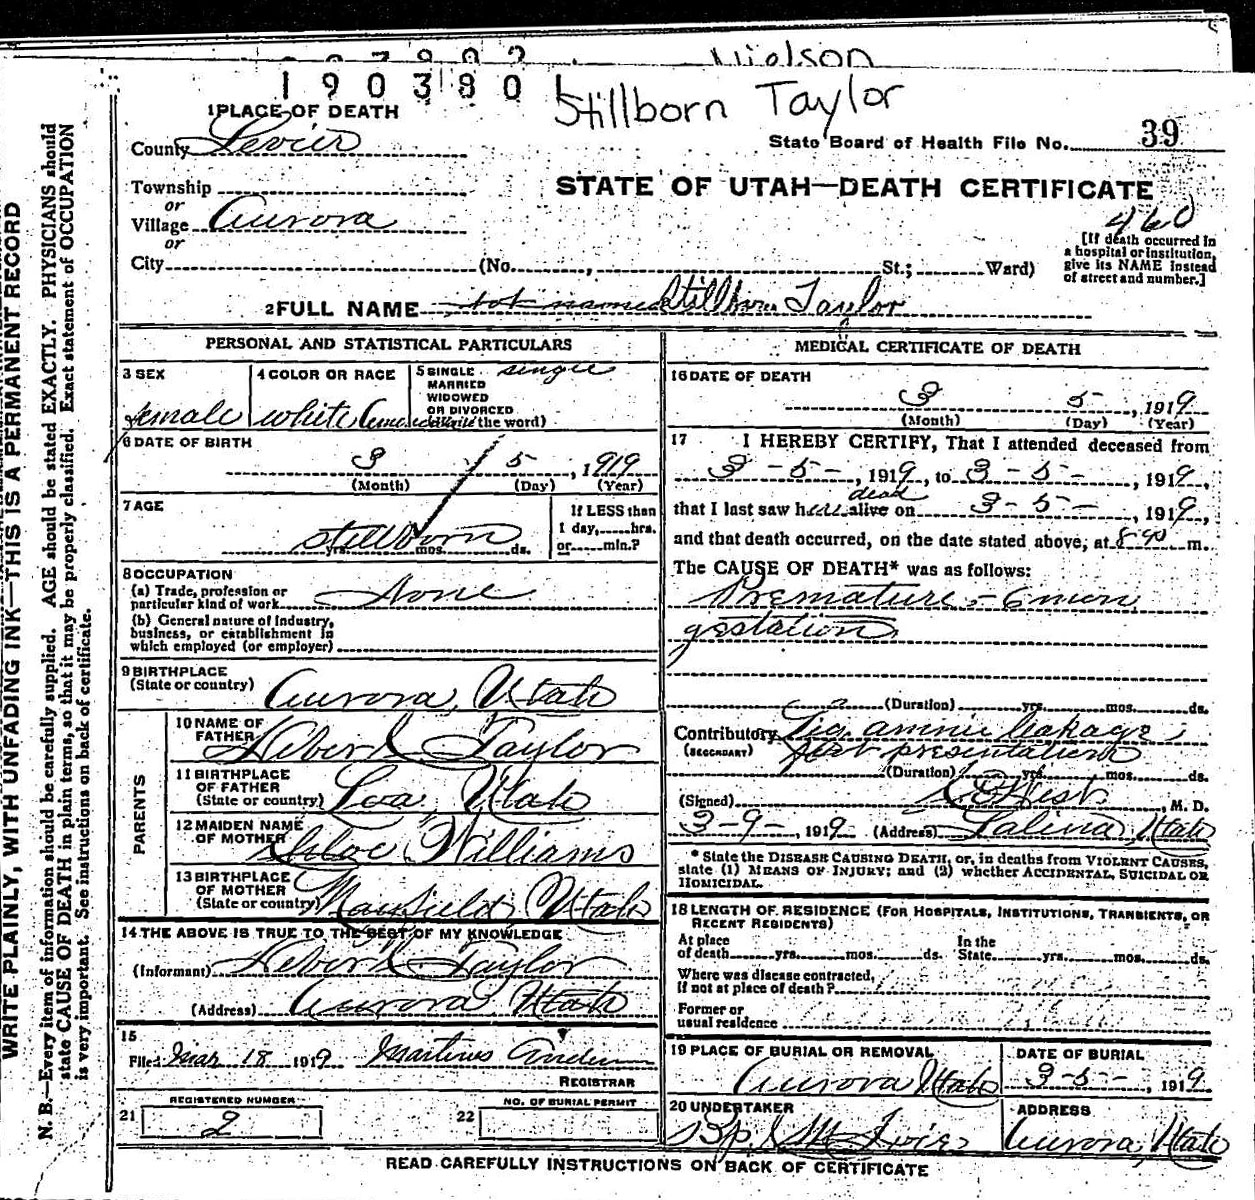 Nielson
190380
Stillborn Taylor
1 PLACE OF DEATH
County Sevier
State Board of Health File No. 39
Township
or
STATE OF UTAH—DEATH CERTIFICATE
Village Aurora
or
460
City (No. , St.; Ward)
[If death occurred in
a hospital or institution,
give its NAME instead
of street and number.]
2 FULL NAME not named Stillborn Taylor
PERSONAL AND STATISTICAL PARTICULARS
3 SEX
female
4 COLOR OR RACE
white
5 SINGLE single
MARRIED
WIDOWED
OR DIVORCED
(Write the word)
6 DATE OF BIRTH
3 5, 1919
(Month) (Day) (Year)
7 AGE
stillborn
yrs. mos. ds.
If LESS than
1 day, hrs.
or min.?
8 OCCUPATION
(a) Trade, profession or
particular kind of work None
(b) General nature of industry,
business, or establishment in
which employed (or employer)
9 BIRTHPLACE
(State or country) Aurora, Utah
PARENTS
10 NAME OF
FATHER Taylor
11 BIRTHPLACE
OF FATHER
(State or country) Loa, Utah
12 MAIDEN NAME
OF MOTHER Chloe Williams
13 BIRTHPLACE
OF MOTHER
(State or country) Mayfield, Utah
14 THE ABOVE IS TRUE TO THE BEST OF MY KNOWLEDGE
(Informant) Taylor
(Address) Aurora Utah
15
Filed Mar 18 1919 Martinus
REGISTRAR
REGISTERED NUMBER
21 2
NO. OF BURIAL PERMIT
22
MEDICAL CERTIFICATE OF DEATH
16 DATE OF DEATH
3 5, 1919
(Month) (Day) (Year)
17 I HEREBY CERTIFY, That I attended deceased from
3-5-, 1919, to 3-5-, 1919,
dead
that I last saw her alive on 3-5-, 1919,
and that death occurred, on the date stated above, at m.
The CAUSE OF DEATH* was as follows:
Premature - 6 mon
gestation
(Duration) yrs. mos. ds.
Contributory Liq. amnii leakage
(SECONDARY) feet presentation
(Duration) yrs. mos. ds.
(Signed) West, M. D.
3-9-, 1919 (Address) Salina, Utah
* State the DISEASE CAUSING DEATH, or, in deaths from VIOLENT CAUSES,
state (1) MEANS OF INJURY; and (2) whether ACCIDENTAL, SUICIDAL OR
HOMICIDAL.
18 LENGTH OF RESIDENCE (FOR HOSPITALS, INSTITUTIONS, TRANSIENTS, OR
RECENT RESIDENTS)
At place
of death yrs. mos. ds.
In the
State yrs. mos. ds.
Where was disease contracted,
if not at place of death?
Former or
usual residence
19 PLACE OF BURIAL OR REMOVAL
Aurora Utah
DATE OF BURIAL
3-5-, 1919
20 UNDERTAKER
Bp.
ADDRESS
Aurora, Utah
READ CAREFULLY INSTRUCTIONS ON BACK OF CERTIFICATE
WRITE PLAINLY, WITH UNFADING INK—THIS IS A PERMANENT RECORD
N. B.—Every item of information should be carefully supplied. AGE should be stated EXACTLY. PHYSICIANS should
state CAUSE OF DEATH in plain terms, so that it may be properly classified. Exact statement of OCCUPATION
is very important. See instructions on back of certificate.